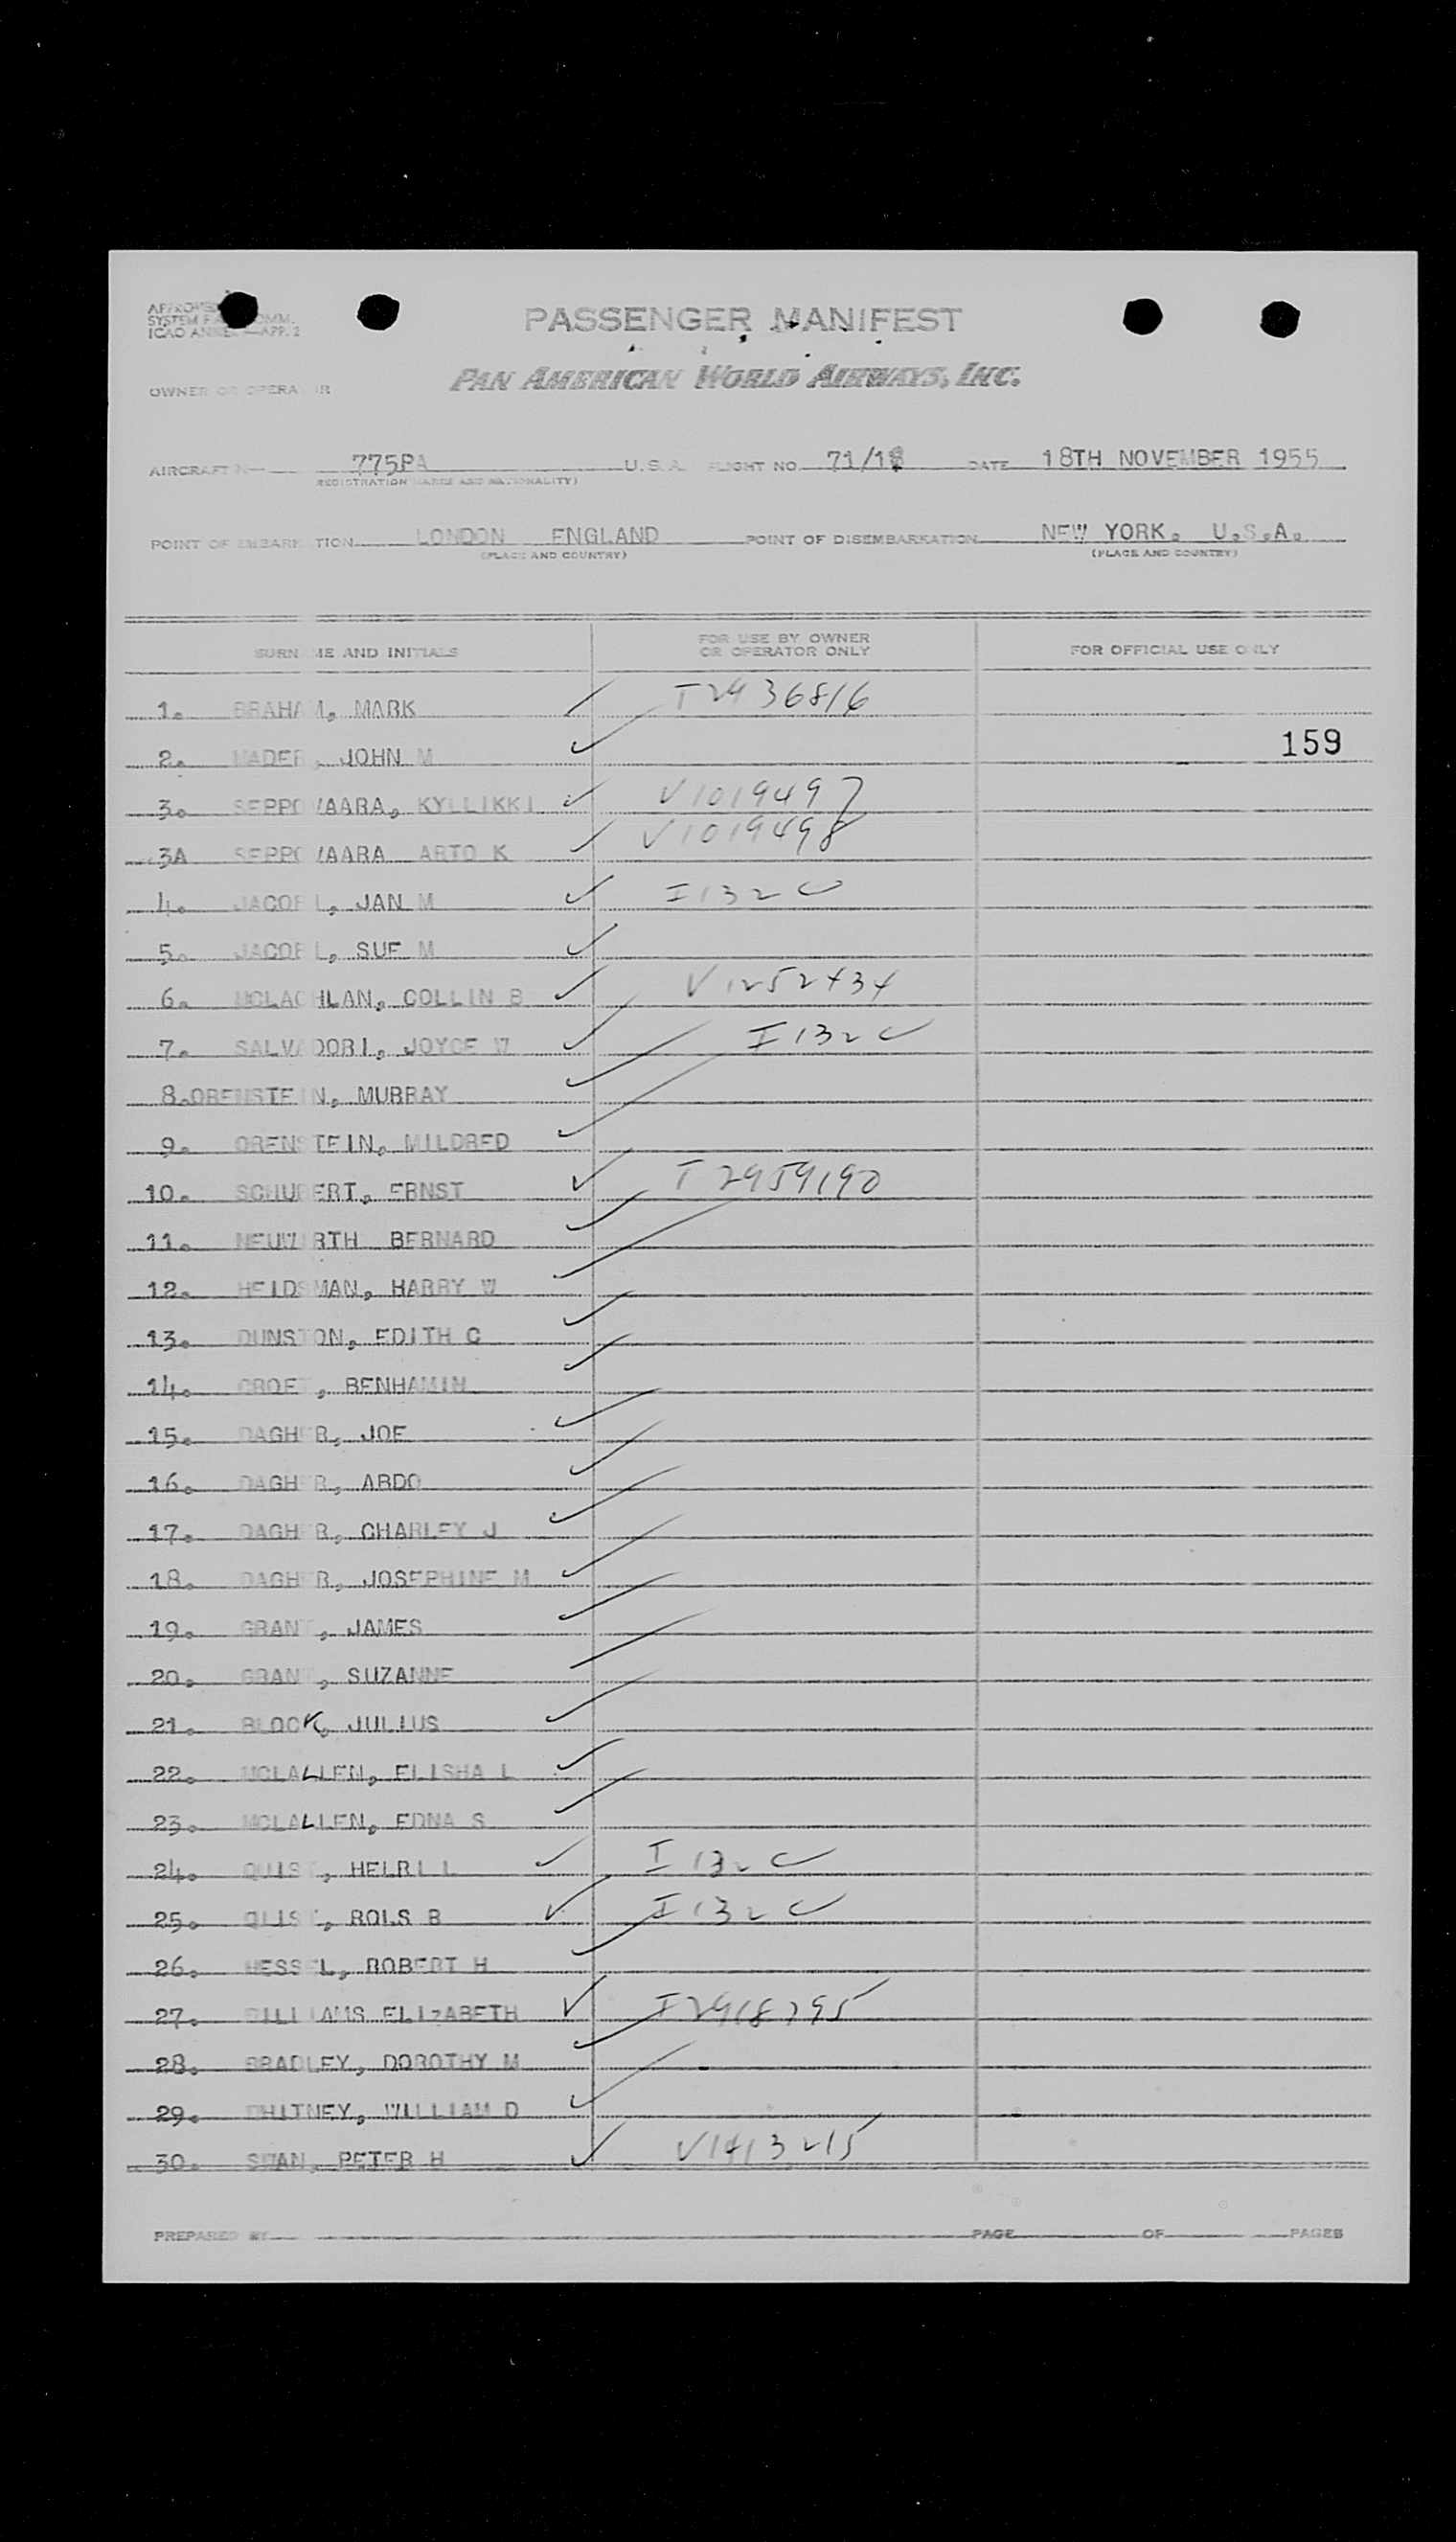 PASSENGER MANIFEST
PAN AMERICAN WORLD AIRWAYS, INC.
AIRCRAFT 775PA U.S.A. FLIGHT NO. 71/18 DATE 18TH NOVEMBER 1955
POINT OF LONDON ENGLAND POINT OF DISEMBARKATION NEW YORK. U.S.A.
(PLACE AND COUNTRY) (PLACE AND COUNTRY)
FOR USE BY OWNER
AND INITIALS OR OPERATOR ONLY FOR OFFICIAL USE ONLY
1. BRAHAM, MARK T2936816
2. JOHN M 159
3. KYLLIKKI V1019497
3A ARTO K V1019498
4. JAN M I132C
5. SUE M
6. MCLACHLAN, COLLIN B V1252434
7. SALVADORI, JOYCE W I132C
8. ORENSTEIN, MURRAY
9. ORENSTEIN, MILDRED
10. SCHUBERT, ERNST T2959190
11. NEUWIRTH BERNARD
12. HEIDSMAN, HARRY W
13. DUNSTON, EDITH C
14. BENHAMIN
15. DAGHER, JOE
16. DAGHER, ABDO
17. DAGHER, CHARLEY J
18. DAGHER, JOSEPHINE M
19. GRANT, JAMES
20. GRANT, SUZANNE
21. BLOCK, JULIUS
22. MCLALLEN, ELISHA L
23. MCLALLEN, EDNA S
24. QUIST, HELRI L I132C
25. ROLS B I132C
26. HESSEL, ROBERT H
27. ELIZABETH I2918795
28. BRADLEY, DOROTHY M
29. WILLIAM D
30. PETER H V1413215
PREPARED BY PAGE OF PAGES